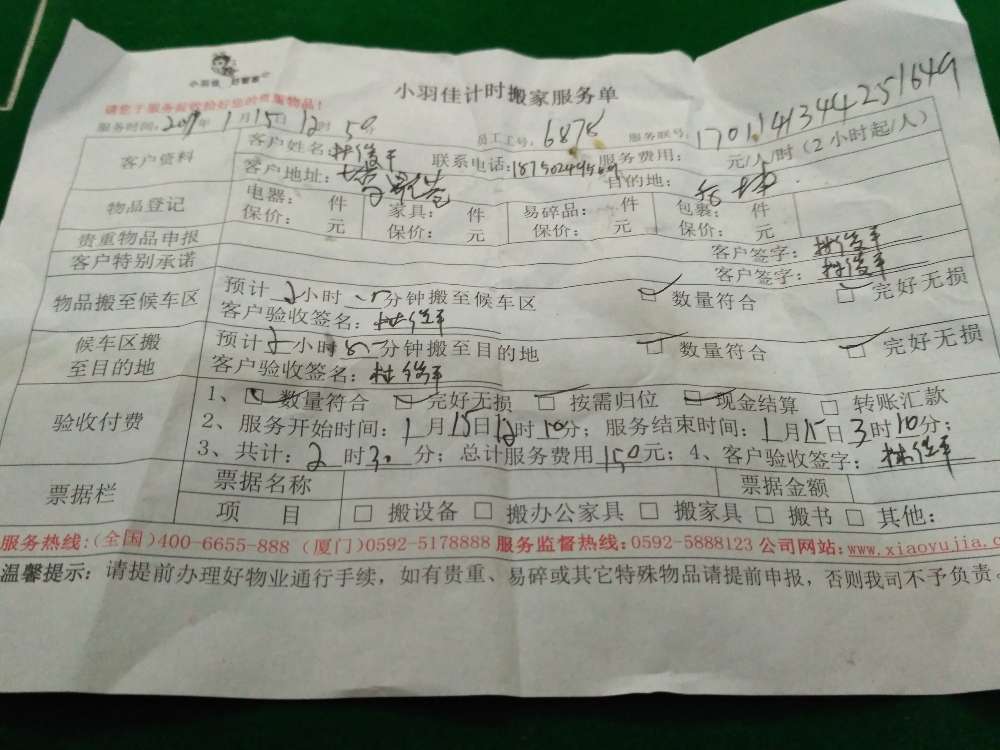 小羽佳 好管家
小羽佳计时搬家服务单
请您于服务前收拾好您的贵重物品!
服务时间: 2017年1月15日12时50分 员工工号: 6878 服务联号: 1701141344251649
客户资料 客户姓名: 林俊平 联系电话: 服务费用: 元/人/时(2小时起/人)
客户地址: 目的地:
物品登记 电器: 件 家具: 件 易碎品: 件 包裹: 件
保价: 元 保价: 元 保价: 元 保价: 元
贵重物品申报 客户签字: 林俊平
客户特别承诺 客户签字: 林俊平
物品搬至候车区 预计 小时 分钟搬至候车区 数量符合 完好无损
客户验收签名: 林俊平
候车区搬至目的地 预计 小时 分钟搬至目的地 数量符合 完好无损
客户验收签名: 林俊平
验收付费 1、 数量符合 完好无损 按需归位 现金结算 转账汇款
2、服务开始时间: 1月15日12时10分; 服务结束时间: 1月15日3时10分;
3、共计: 2时30分; 总计服务费用150元; 4、客户验收签字: 林俊平
票据栏 票据名称 票据金额
项 目 搬设备 搬办公家具 搬家具 搬书 其他:
服务热线:(全国)400-6655-888 (厦门)0592-5178888 服务监督热线:0592-5888123 公司网站:www.xiaoyujia.c
温馨提示: 请提前办理好物业通行手续, 如有贵重、易碎或其它特殊物品请提前申报, 否则我司不予负责。